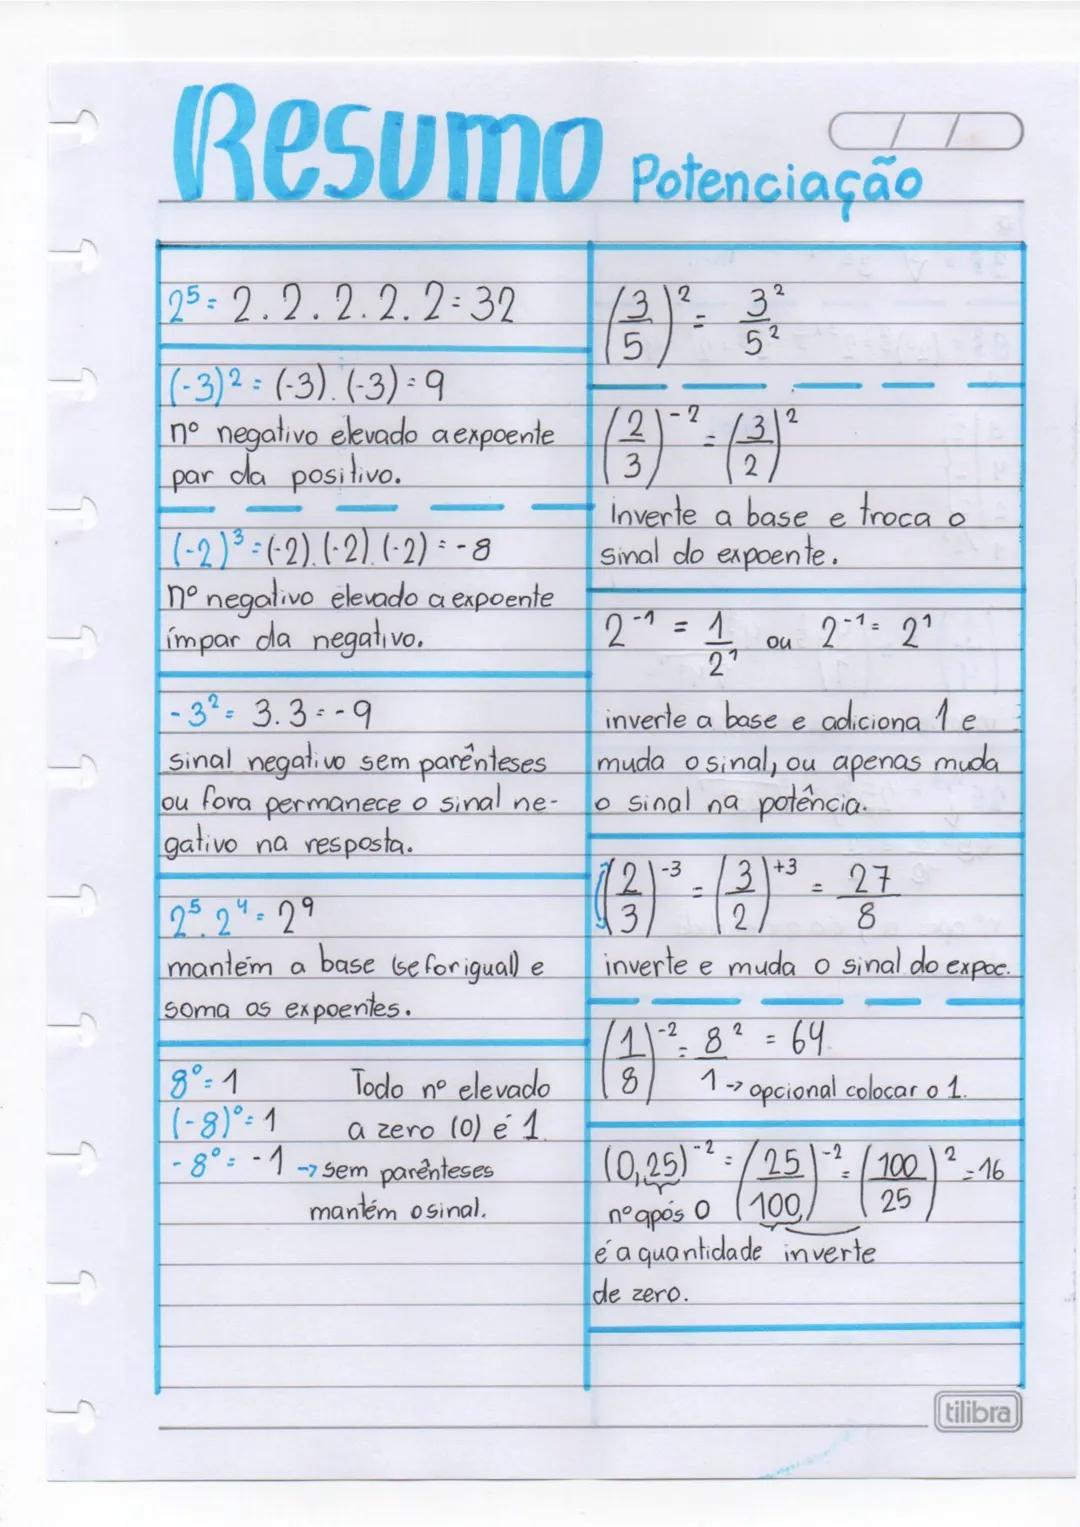 Resumo Potenciação
2⁵ = 2 . 2 . 2 . 2 . 2 = 32
(-3)² = (-3) . (-3) = 9
nº negativo elevado a expoente
par da positivo.
(-2)³ = (-2) . (-2) . (-2) = -8
nº negativo elevado a expoente
ímpar da negativo.
-3² = 3 . 3 = -9
sinal negativo sem parênteses
ou fora permanece o sinal ne-
gativo na resposta.
2⁵ . 2⁴ = 2⁹
mantém a base (se for igual) e
soma os expoentes.
8⁰ = 1 Todo nº elevado
(-8)⁰ = 1 a zero (0) é 1.
-8⁰ = -1 → sem parênteses
mantém o sinal.
(3/5)² = 3²/5²
(2/3)⁻² = (3/2)²
Inverte a base e troca o
sinal do expoente.
2⁻¹ = 1/2¹ ou 2⁻¹ = 2¹
inverte a base e adiciona 1 e
muda o sinal, ou apenas muda
o sinal na potência.
(2/3)⁻³ = (3/2)⁺³ = 27/8
inverte e muda o sinal do expoe.
(1/8)⁻² = 8²/1 = 64
1 → opcional colocar o 1.
(0,25)⁻² = (25/100)⁻² = (100/25)² = 16
nº após 0
é a quantidade inverte
de zero.
tilibra